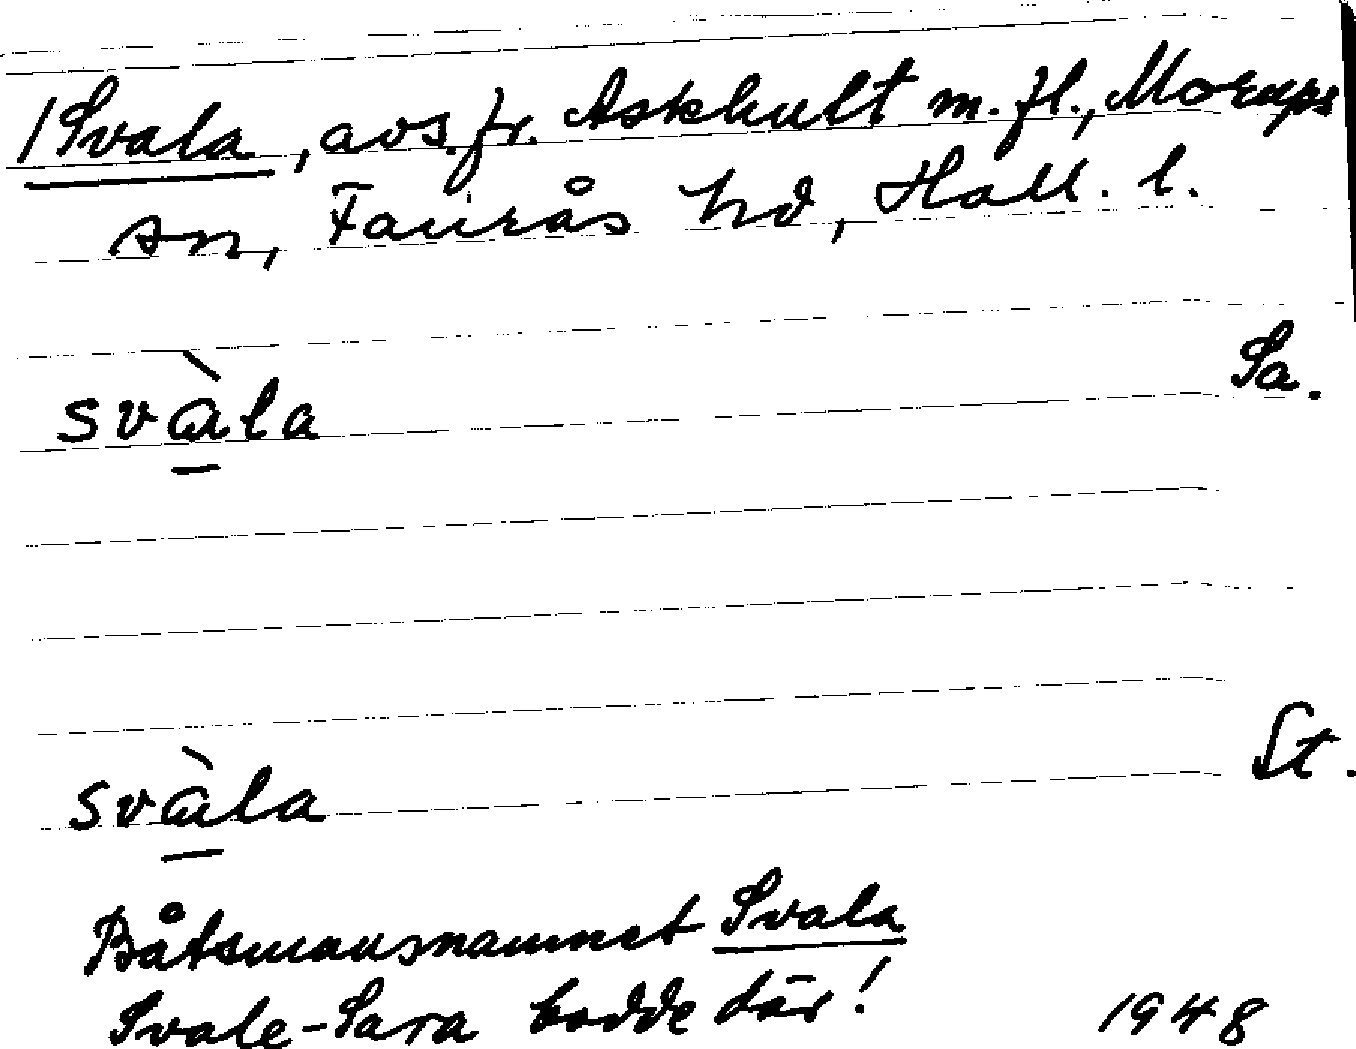 /Svala, avs. fr. Askhult m. fl., Morups
sn, Faurås hd, Hall. l.
svàla Sa.
svàla St.
Båtsmansnamnet Svala
Svale-Sara bodde där! 1948